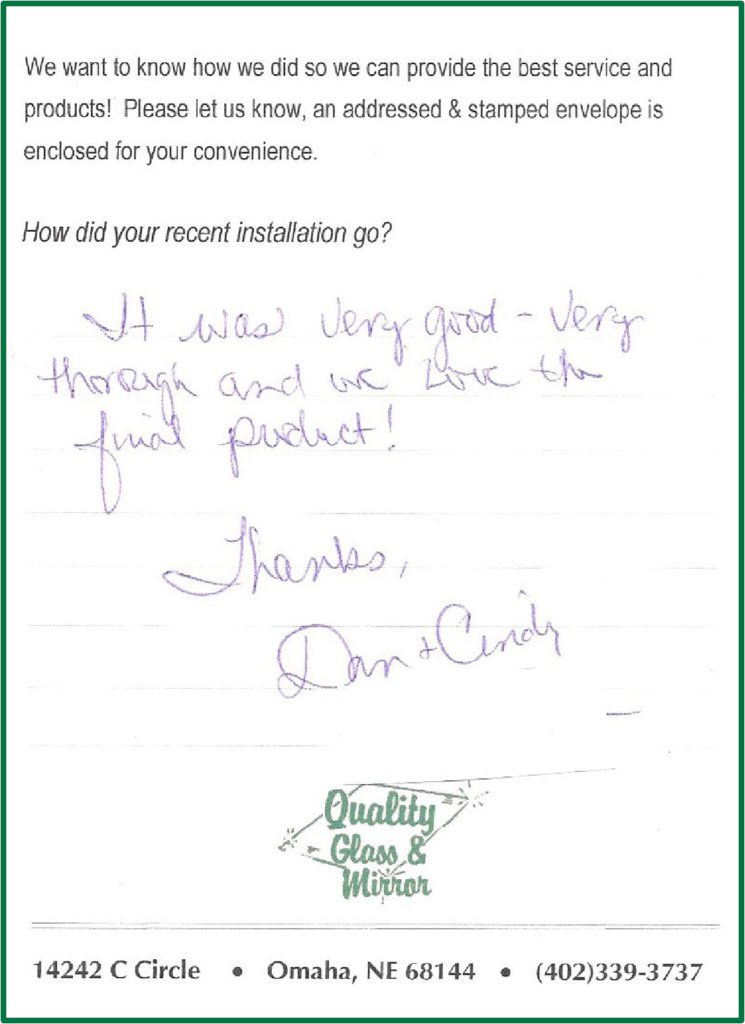 We want to know how we did so we can provide the best service and
products! Please let us know, an addressed & stamped envelope is
enclosed for your convenience.
How did your recent installation go?
It was very good - very
thorough and we love the
final product!
Thanks,
Dan + Cindy
Quality
Glass &
Mirror
14242 C Circle • Omaha, NE 68144 • (402)339-3737